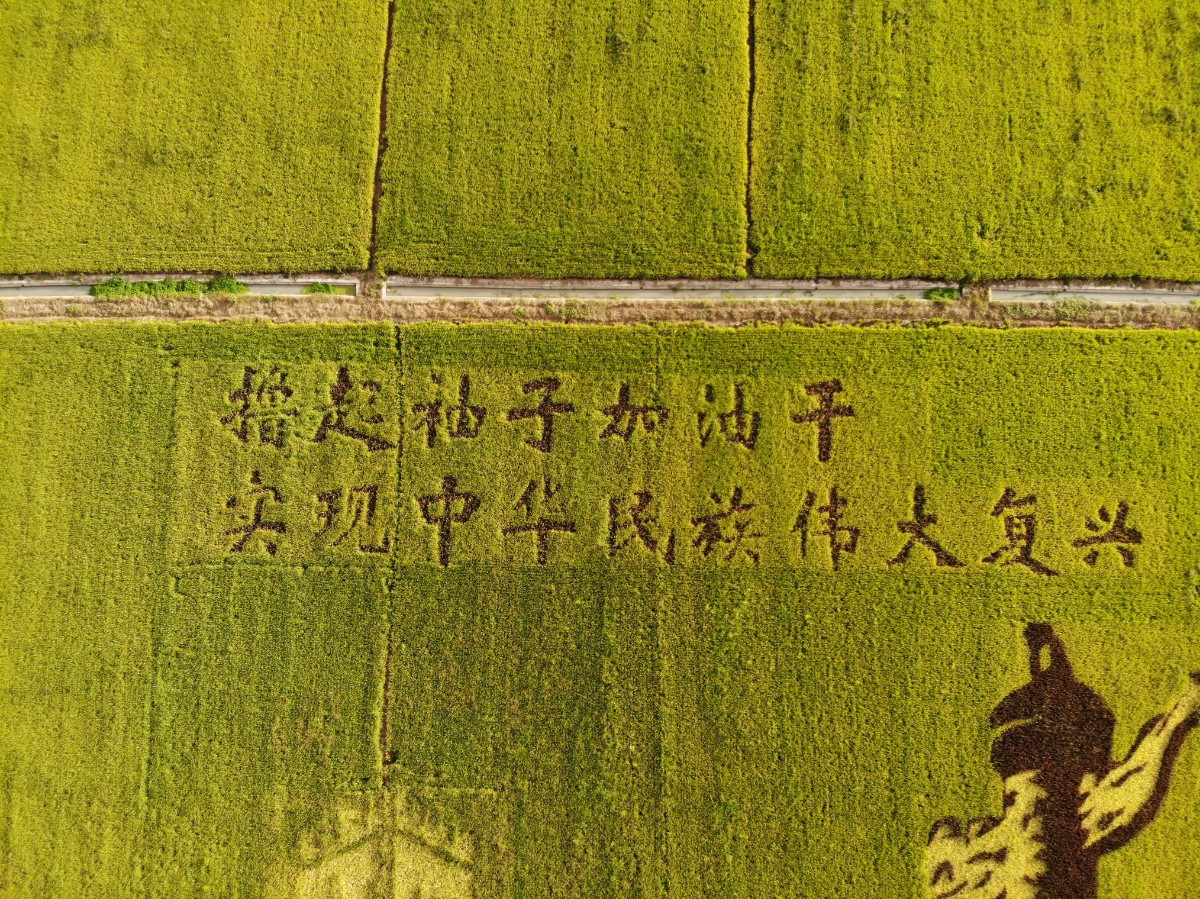 撸起袖子加油干
实现中华民族伟大复兴